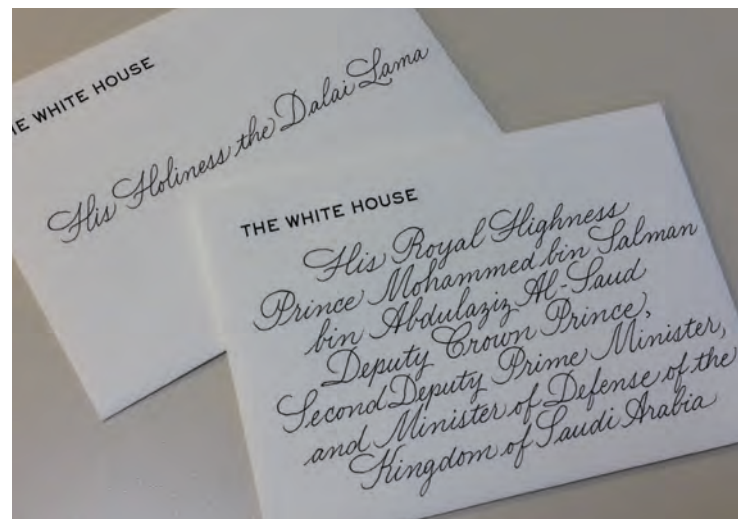 THE WHITE HOUSE
His Holiness the Dalai Lama
THE WHITE HOUSE
His Royal Highness
Prince Mohammed bin Salman
bin Abdulaziz Al-Saud
Deputy Crown Prince,
Second Deputy Prime Minister,
and Minister of Defense of the
Kingdom of Saudi Arabia